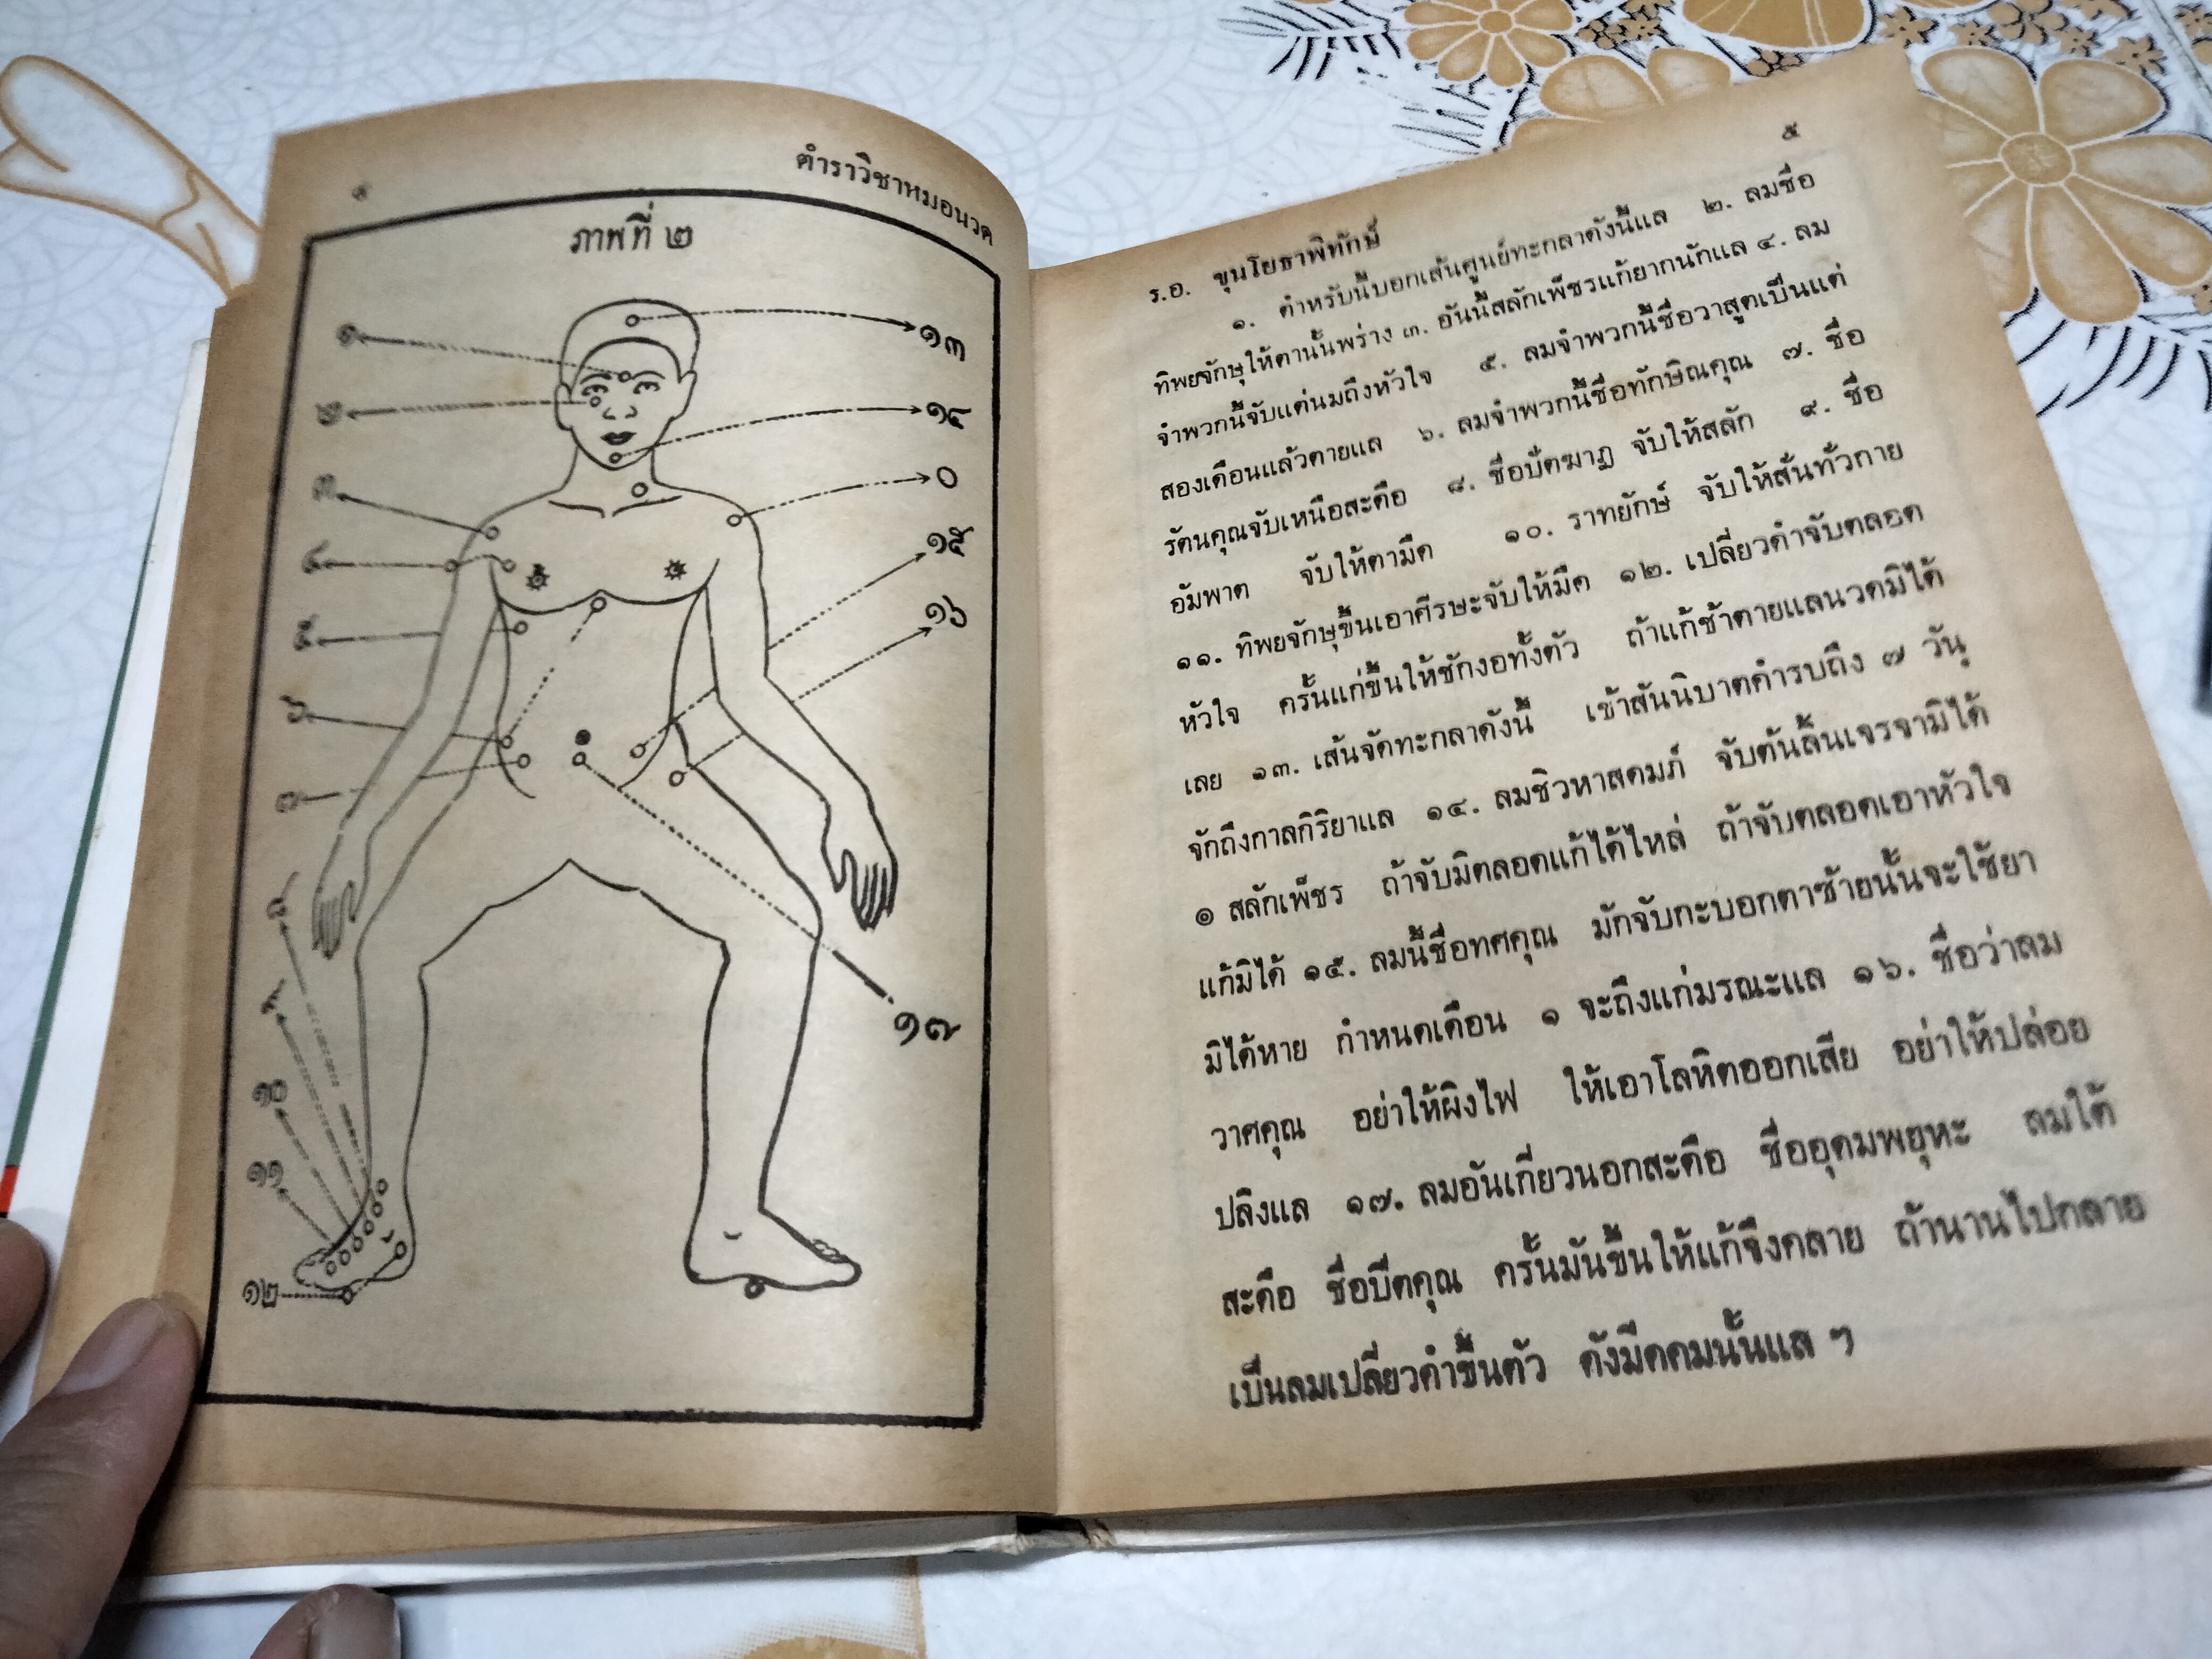 ตำราวิชาหมอนวด
ภาพที่ ๒
๑
๒
๓
๔
๕
๖
๗
๘
๙
๑๐
๑๑
๑๒
๑๓
๑๔
๐
๑๕
๑๖
๑๗
๕
ร.อ. ขุนโยธาพิทักษ์
๑. ตำหรับนี้บอกเส้นศูนย์ทะกลาดังนี้แล ๒. ลมชื่อ
ทิพยจักษุให้ตานั้นพร่าง ๓. อันนี้สลักเพ็ชรแก้ยากนักแล ๔. ลม
จำพวกนี้จับแต่นมถึงหัวใจ ๕. ลมจำพวกนี้ชื่อวาสูตเป็นแต่
สองเดือนแล้วตายแล ๖. ลมจำพวกนี้ชื่อทักษิณคุณ ๗. ชื่อ
รัตนคุณจับเหนือสะดือ ๘. ชื่อบัตฆาฏ จับให้สลัก ๙. ชื่อ
อัมพาต จับให้ตามืด ๑๐. ราทยักษ์ จับให้สั่นทั่วกาย
๑๑. ทิพยจักษุขึ้นเอาศีรษะจับให้มืด ๑๒. เปลี่ยวดำจับตลอด
หัวใจ ครั้นแก่ขึ้นให้ชักงอทั้งตัว ถ้าแก้ช้าตายแลนวดมิได้
เลย ๑๓. เส้นจัดทะกลาดังนี้ เข้าสันนิบาตคำรบถึง ๗ วัน
จักถึงกาลกิริยาแล ๑๔. ลมชิวหาสดมภ์ จับต้นลิ้นเจรจามิได้
๑ สลักเพ็ชร ถ้าจับมิตลอดแก้ได้ไหล่ ถ้าจับตลอดเอาหัวใจ
แก้มิได้ ๑๕. ลมนี้ชื่อทศคุณ มักจับกะบอกตาซ้ายนั้นจะใช้ยา
มิได้หาย กำหนดเดือน ๑ จะถึงแก่มรณะแล ๑๖. ชื่อว่าลม
วาศคุณ อย่าให้ผิงไฟ ให้เอาโลหิตออกเสีย อย่าให้ปล่อย
ปลิงแล ๑๗. ลมอันเกี่ยวนอกสะดือ ชื่ออุดมพยุหะ ลมใต้
สะดือ ชื่อบีตคุณ ครั้นมันขึ้นให้แก้จึงคลาย ถ้านานไปกลาย
เป็นลมเปลี่ยวดำขึ้นตัว ดังมีดคมนั้นแล ฯ